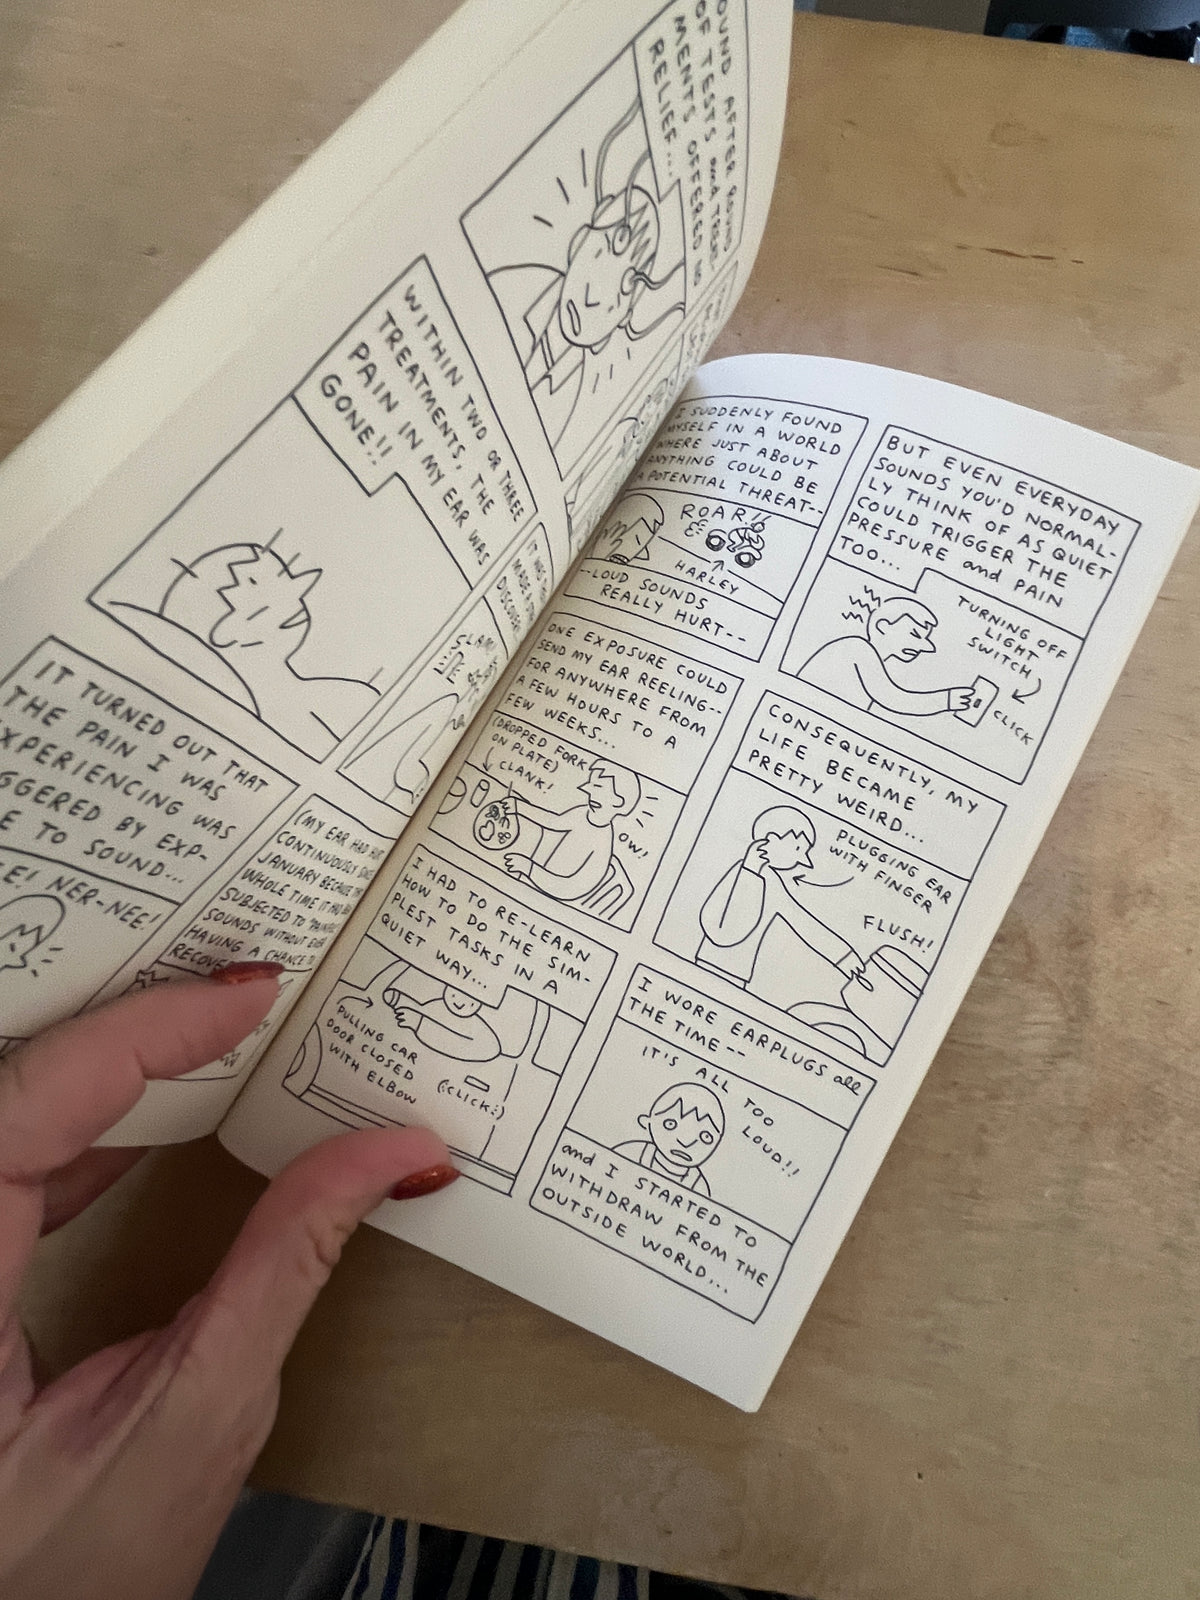 OUND AFTER ROUND
OF TESTS and TREAT-
MENTS OFFERED NO
RELIEF...
WITHIN TWO OR THREE
TREATMENTS, THE
PAIN IN MY EAR WAS
GONE!!
IT
MADE
DISCOVERY
SLAM!
IT TURNED OUT THAT
THE PAIN I WAS
XPERIENCING WAS
GGERED BY EXP-
E TO SOUND...
EE! NER-NEE!
(MY EAR HAD
CONTINUOUSLY
JANUARY BECAUSE
WHOLE TIME IT HAD
SUBJECTED TO
SOUNDS WITHOUT EVER
HAVING A CHANCE TO
RECOVE
I SUDDENLY FOUND
MYSELF IN A WORLD
WHERE JUST ABOUT
ANYTHING COULD BE
A POTENTIAL THREAT--
ROAR!!
HARLEY
--LOUD SOUNDS
REALLY HURT--
BUT EVEN EVERYDAY
SOUNDS YOU'D NORMAL-
LY THINK OF AS QUIET
COULD TRIGGER THE
PRESSURE and PAIN
TOO...
TURNING OFF
LIGHT
SWITCH
CLICK
ONE EXPOSURE COULD
SEND MY EAR REELING--
FOR ANYWHERE FROM
A FEW HOURS TO A
FEW WEEKS...
(DROPPED FORK
ON PLATE)
CLANK!
OW!
CONSEQUENTLY, MY
LIFE BECAME
PRETTY WEIRD...
PLUGGING EAR
WITH FINGER
FLUSH!
I HAD TO RE-LEARN
HOW TO DO THE SIM-
PLEST TASKS IN A
QUIET WAY...
PULLING CAR
DOOR CLOSED
WITH ELBOW
(:CLICK:)
I WORE EARPLUGS all
THE TIME--
IT'S ALL TOO
LOUD!!
and I STARTED TO
WITHDRAW FROM THE
OUTSIDE WORLD...